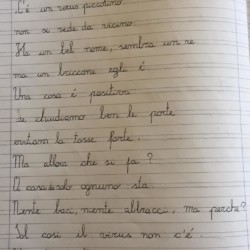 C'è un virus piccolino
non si vede da vicino.
Ha un bel nome, sembra un re
ma un briccone egli é
Una cosa é positiva
se chiudiamo ben le porte
evitiam la tosse forte.
Ma allora che si fa?
A casa solo ognuno sta.
Niente baci, niente abbracci, ma perché?
Sol così il virus non c'é.